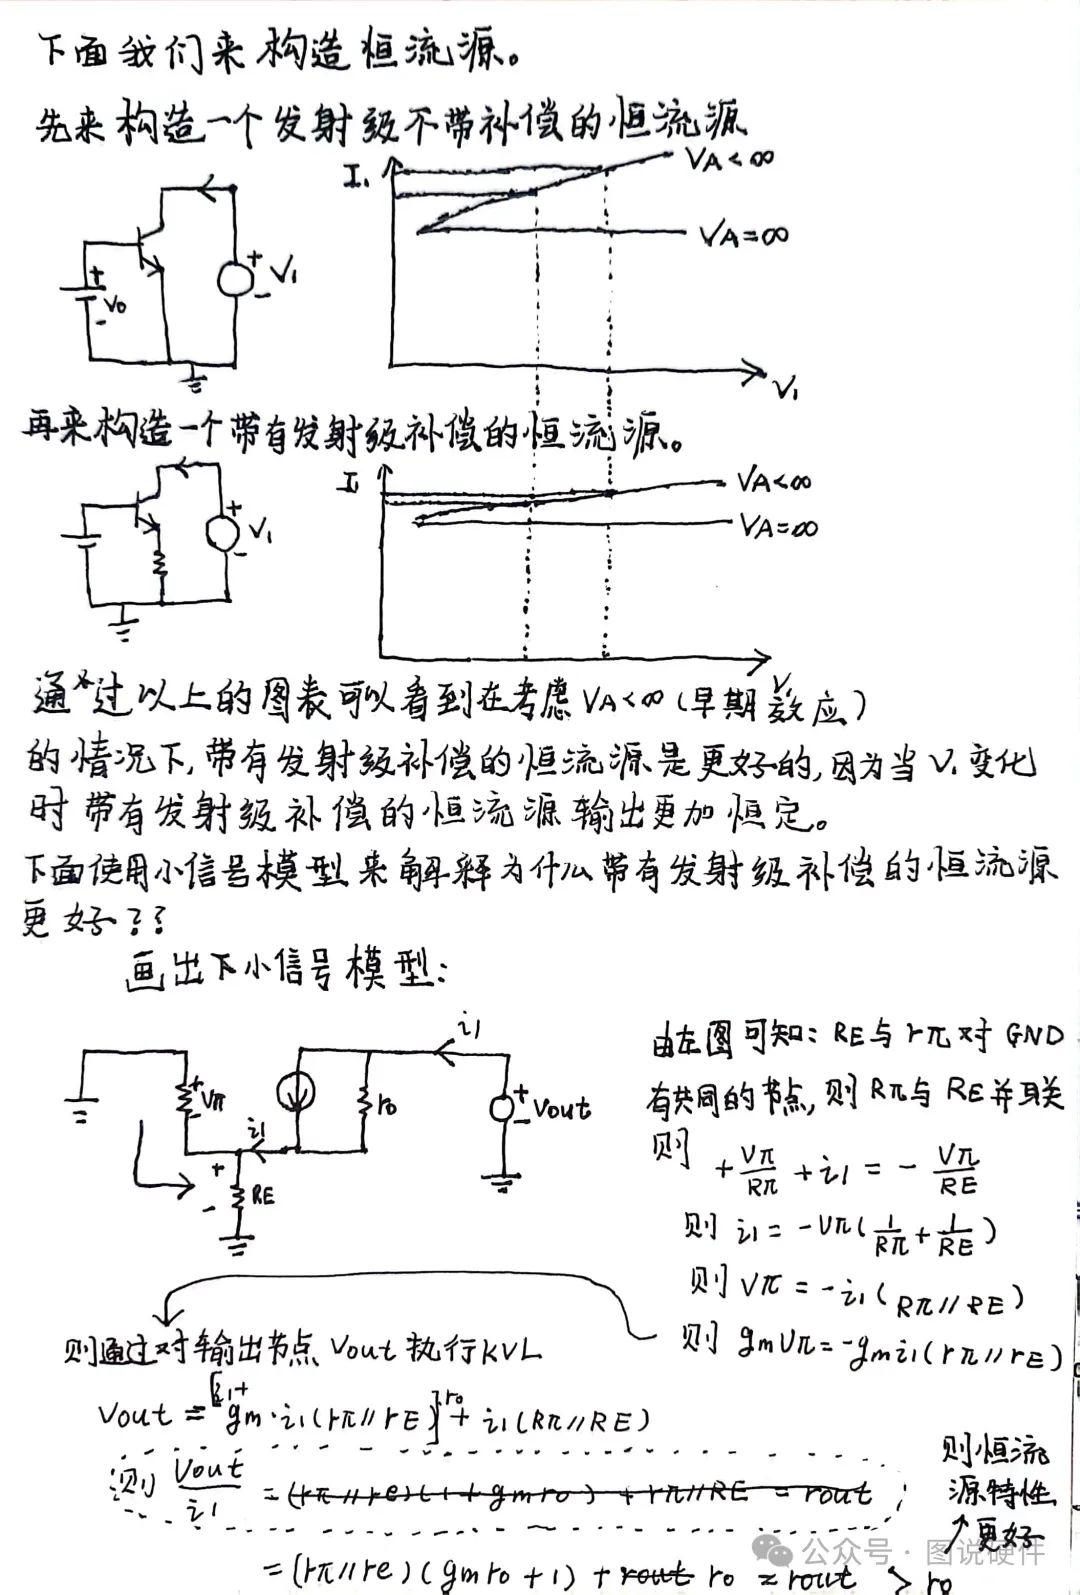 下面我们来构造恒流源。
先来构造一个发射级不带补偿的恒流源
I₁
VA<∞
VA=∞
+
V₀
-
+
V₁
-
V₁
再来构造一个带有发射级补偿的恒流源。
I₁
VA<∞
VA=∞
+
V₁
-
V₁
通过以上的图表可以看到在考虑VA<∞(早期效应)
的情况下,带有发射级补偿的恒流源是更好的,因为当V₁变化
时带有发射级补偿的恒流源输出更加恒定。
下面使用小信号模型来解释为什么带有发射级补偿的恒流源
更好???
画出下小信号模型:
i1
+
Vπ
-
ro
+
Vout
-
i1
+
RE
-
由左图可知: RE与rπ对GND
有共同的节点,则Rπ与RE并联
则 +Vπ/Rπ + i1 = - Vπ/RE
则 i1 = -Vπ(1/Rπ + 1/RE)
则 Vπ = -i1(Rπ//RE)
则 gmVπ = -gmi1(rπ//rE)
则通过对输出节点Vout执行KVL
Vout = [i1+gm·i1(rπ//rE)]ro + i1(Rπ//RE)
则 Vout/i1 = (rπ//re)(1+gmro) + rπ//RE = rout ;
= (rπ//re)(gmro+1) + rout ro = rout > ro
则恒流
源特性
↑更好
公众号 · 图说硬件